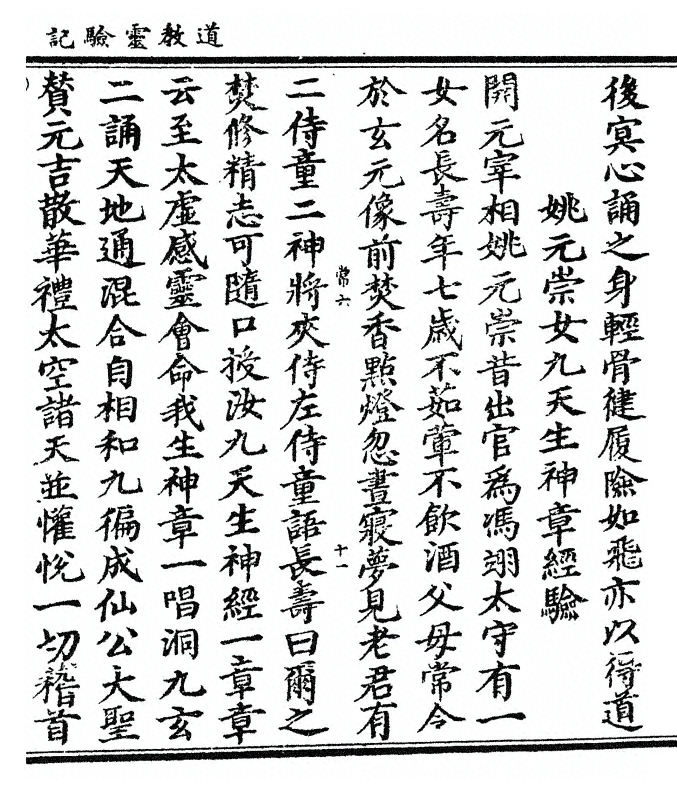 道教靈驗記
後㝠心誦之身輕骨健履險如飛亦以得道
姚元崇女九天生神章經驗
開元宰相姚元崇昔出官爲馮翊太守有一
女名長壽年七歲不茹葷不飲酒父母常令
於玄元像前焚香點燈忽晝寢夢見老君有
二侍童二神將夾侍左侍童語長壽曰爾之
常六
十一
焚修精志可隨口授汝九天生神經一章章
云至太虛感靈會命我生神章一唱洞九玄
二誦天地通混合自相和九徧成仙公大聖
賛元吉散華禮太空諸天並懽悅一切稽首